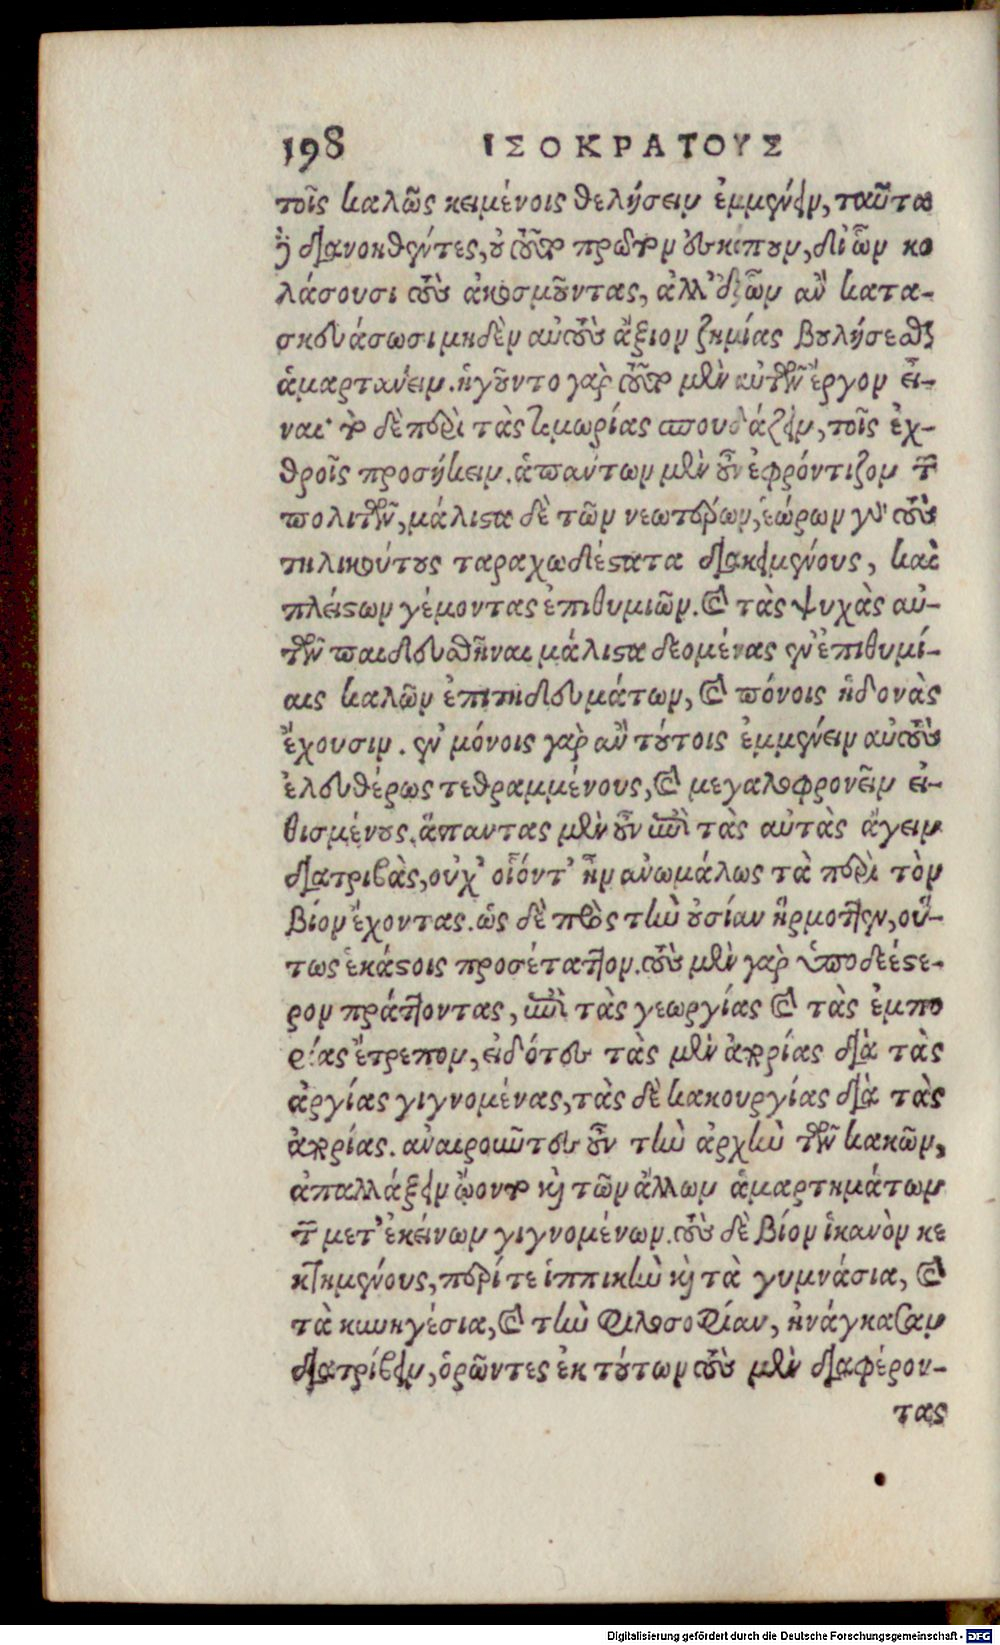 198 ΙΣΟΚΡΑΤΟΥΣ
τοῖς καλῶς κειμένοις θελήσειν ἐμμένειν, ταῦτα
δὲ διανοηθέντες, οὐ τοῦτο πρῶτον ἐσκόπουν, δι' ὧν κο
λάσουσι τοὺς ἀκοσμοῦντας, ἀλλ' ἐξ ὧν ἂν κατα-
σκευάσωσι μηδὲν αὐτοὺς ἄξιον ζημίας βουλήσεσθαι
ἁμαρτάνειν. ἡγοῦντο γὰρ τοῦτο μὲν αὑτῶν ἔργον εἶ-
ναι· τὸ δὲ περὶ τὰς τιμωρίας σπουδάζειν, τοῖς ἐχ-
θροῖς προσήκειν. ἁπάντων μὲν οὖν ἐφρόντιζον τῶν
πολιτῶν, μάλιστα δὲ τῶν νεωτέρων, ἑώρων γὰρ τοὺς
τηλικούτους ταραχωδέστατα διακειμένους, καὶ
πλείστων γέμοντας ἐπιθυμιῶν. καὶ τὰς ψυχὰς αὐ-
τῶν παιδευθῆναι μάλιστα δεομένας ἐν ἐπιθυμί-
αις καλῶν ἐπιτηδευμάτων, καὶ πόνοις ἡδονὰς
ἔχουσιν. ἐν μόνοις γὰρ ἂν τούτοις ἐμμένειν αὐτοὺς
ἐλευθέρως τεθραμμένους, καὶ μεγαλοφρονεῖν εἰ-
θισμένους. ἅπαντας μὲν οὖν ἐπὶ τὰς αὐτὰς ἄγειν
διατριβὰς, οὐχ' οἷόντ' ἦν ἀνωμάλως τὰ περὶ τὸν
βίον ἔχοντας. ὡς δὲ πρὸς τὴν οὐσίαν ἥρμοττεν, οὕ-
τως ἑκάστοις προσέταττον. τοὺς μὲν γὰρ ὑποδεέστε-
ρον πράττοντας, ἐπὶ τὰς γεωργίας καὶ τὰς ἐμπο
ρίας ἔτρεπον, εἰδότες τὰς μὲν ἀπορίας διὰ τὰς
ἀργίας γιγνομένας, τὰς δὲ κακουργίας διὰ τὰς
ἀπορίας. ἀναιροῦντες οὖν τὴν ἀρχὴν τῶν κακῶν,
ἀπαλλάξειν ᾤοντο καὶ τῶν ἄλλων ἁμαρτημάτων
τῶν μετ' ἐκείνων γιγνομένων. τοὺς δὲ βίον ἱκανὸν κε
κτημένους, περί τε ἱππικὴν καὶ τὰ γυμνάσια, καὶ
τὰ κυνηγέσια, καὶ τὴν φιλοσοφίαν, ἠνάγκασαν
διατρίβειν, ὁρῶντες ἐκ τούτων τοὺς μὲν διαφέρον-
τας
Digitalisierung gefördert durch die Deutsche Forschungsgemeinschaft - DFG